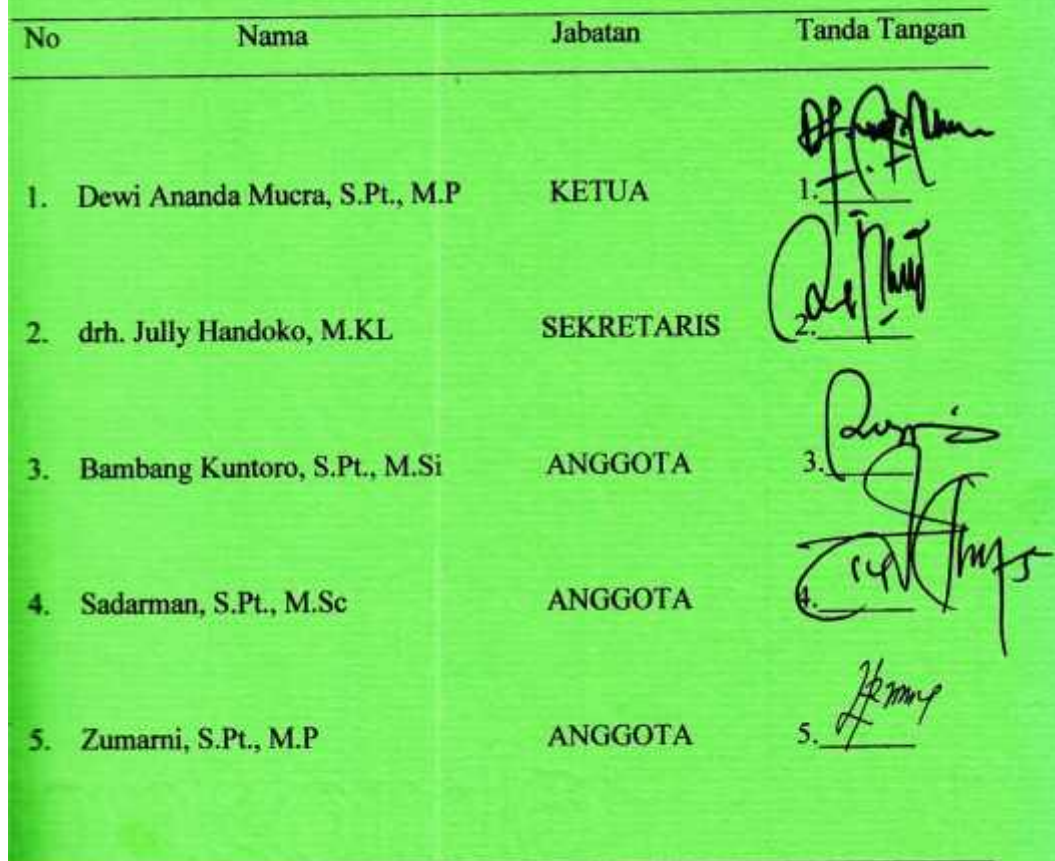 No Nama Jabatan Tanda Tangan
1. Dewi Ananda Mucra, S.Pt., M.P KETUA 1.
2. drh. Jully Handoko, M.KL SEKRETARIS 2.
3. Bambang Kuntoro, S.Pt., M.Si ANGGOTA 3.
4. Sadarman, S.Pt., M.Sc ANGGOTA 4.
5. Zumarni, S.Pt., M.P ANGGOTA 5.